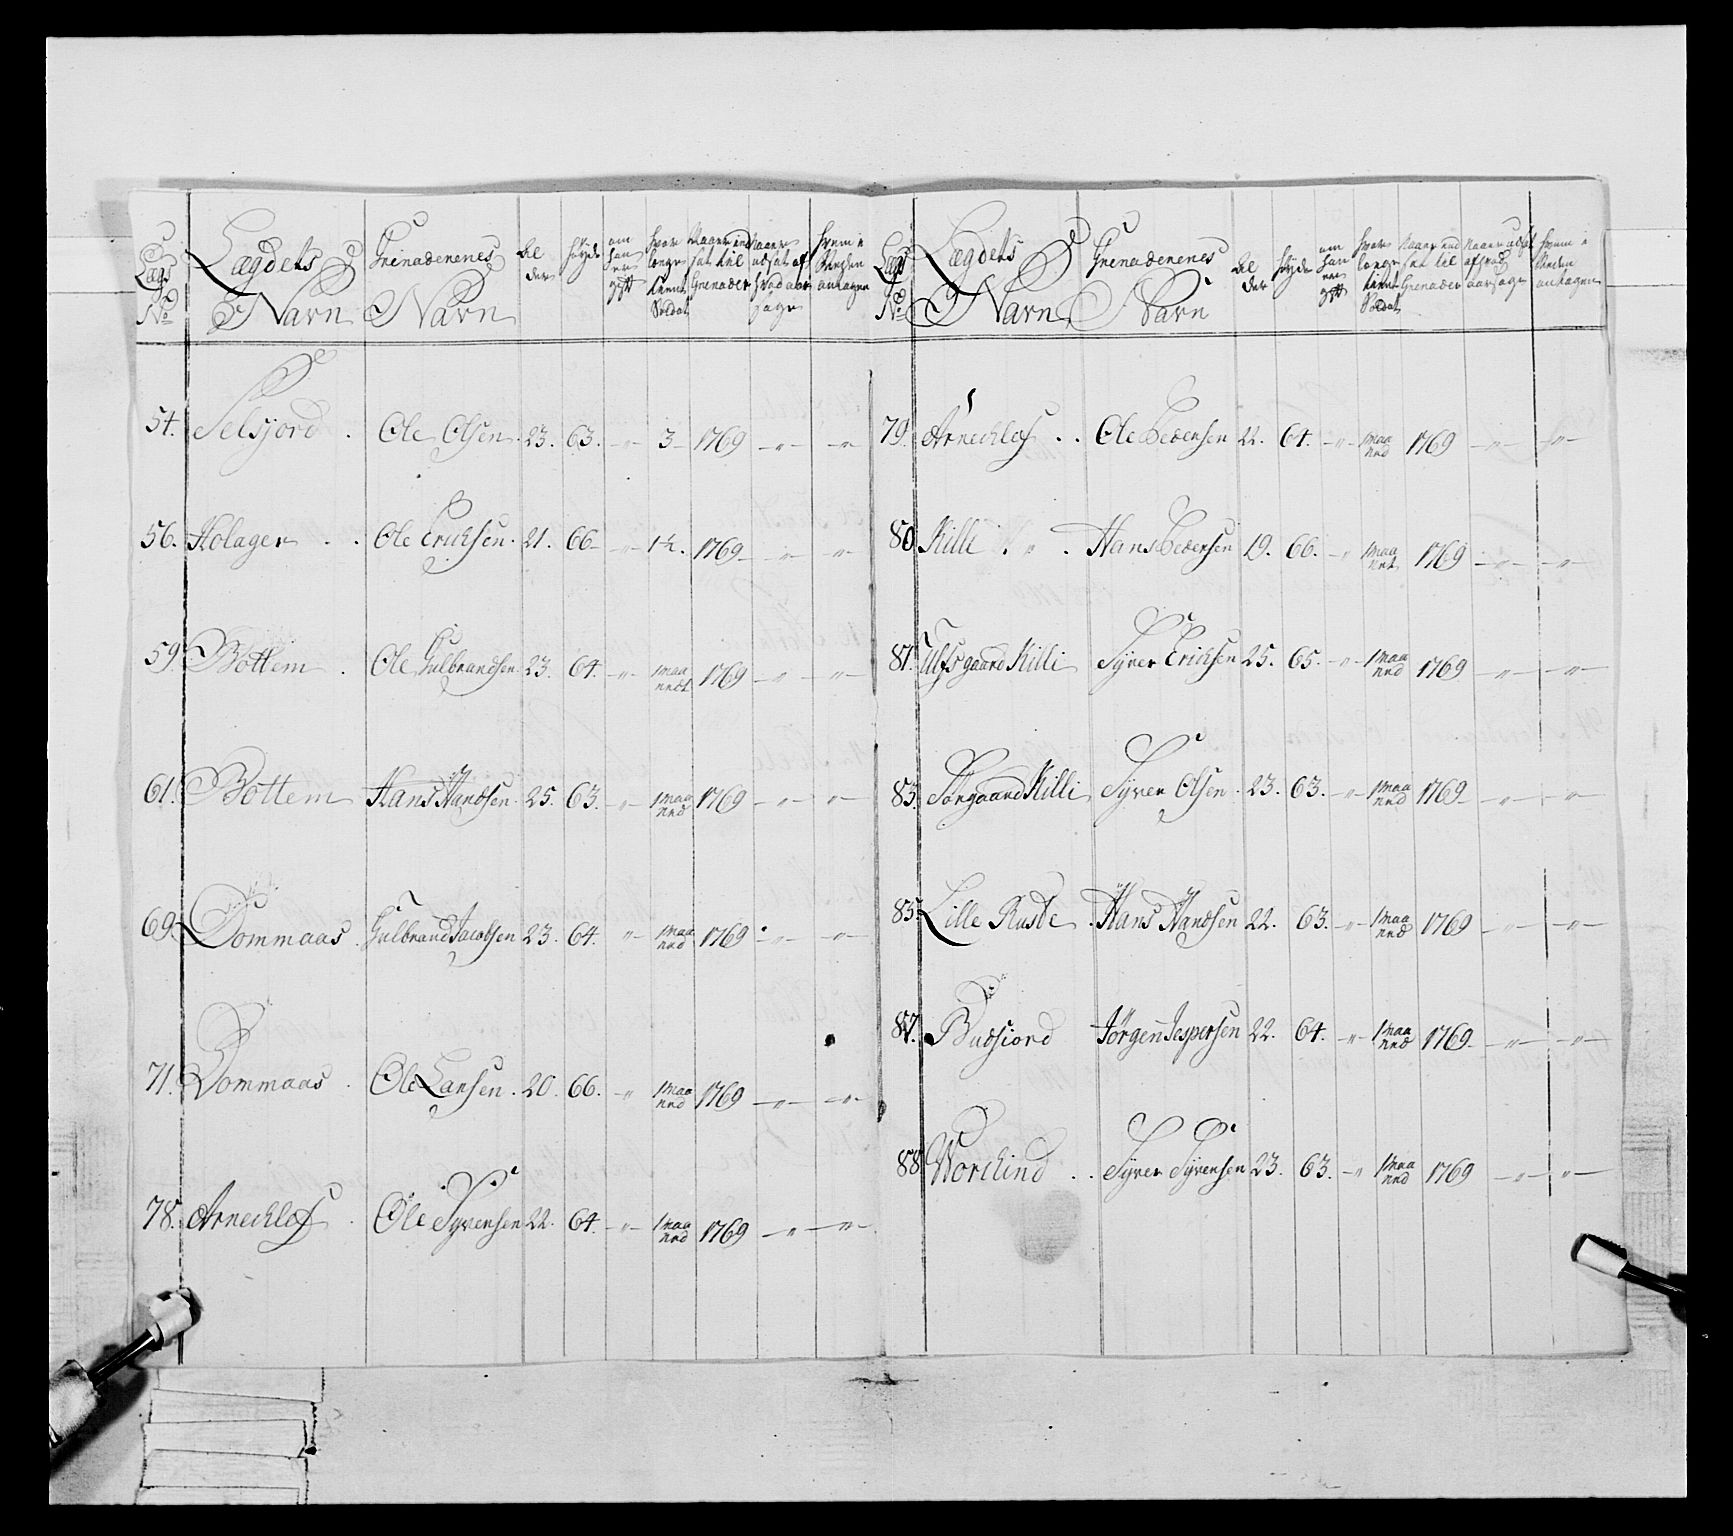 Lægs No Lægdets Navn Grenaderenes Navn Al der Høyde om han er gift hvor længe tient Soldat Naar ind sat til Grenader Naar udsat af hvad aar sage hvem i Steden antagen
54. Selsjord . Ole Olsen . 23. 63. -"- 3 1769 -"- -"-
56. Holager . . Ole Erichsen . 21. 66 -"- 1½. 1769 -"- -"-
59 Bottem . Ole Gulbrandsen 23. 64. -"- 1 maa nedt 1769 -"- -"-
61. Bottem Hans Handsen . 25. 63. -"- 1 maa ned 1769 -"- -"-
69. Dommaas . Gulbrand Jacobsen 23. 64. " 1 maa ned 1769 -"- -"-
71. Dommaas . Ole Larsen . 20. 66. " 1 maa ned 1769 -"- -"-
78. Arnechlof . Ole Syversen 22. 64. -"- 1 maa ned 1769 -"- -"-
Lægs No Lægdets Navn Grenaderenes Navn Al der Høyde om han er gift hvor længe tient Soldat Naar ind sat til Grenader Naar udsat af hvad aarsage hvem i Steden antagen
79. Arnechlof . . Ole Pedersen 22. 64. -"- 1 maa ned 1769 -"- -"-
80 Killi . " . Hans Pedersen 19. 66. -"- 1 maa net 1769 -"- -"-
81. Ulfsgaard Killi Syver Erichsen 25. 65. -"- 1 maa ned 1769 -"- -"-
83. Sørgaard Killi Syver Olsen . 23. 63. -"- 1 maa ned 1769 -"- -"-
85. Lille Ruste . Hans Handsen 22. 63. -"- 1 maa ned 1769 -"- -"-
87. Budsiord Jørgen Jespersen 22. 64. -"- 1 maa ned 1769 -"- -"-
88 Workind . . Syver Syversen 23. 63. -"- 1 maa ned 1769 -"- -"-